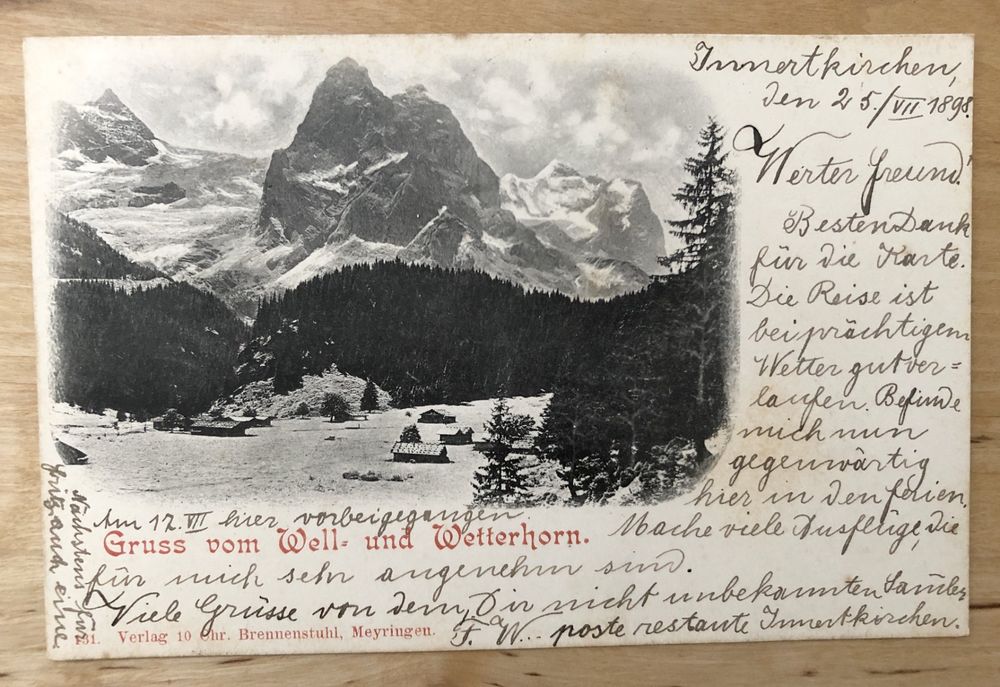 Innertkirchen,
den 25./VII 1898.
Werter Freund!
Besten Dank
für die Karte.
Die Reise ist
bei prächtigem
Wetter gut ver=
laufen. Befinde
mich nun
gegenwärtig
hier in den Ferien.
Mache viele Ausflüge, die
für mich sehr angenehm sind.
Viele Grüsse von dem, Dir nicht unbekannten Sam̄ler
F. W... poste restante Innertkirchen.
Am 17. VII hier vorbeigegangen
Gruss vom Well- und Wetterhorn.
131. Verlag 10 Chr. Brennenstuhl, Meyringen.
Nächstens für
Fritz auch eine